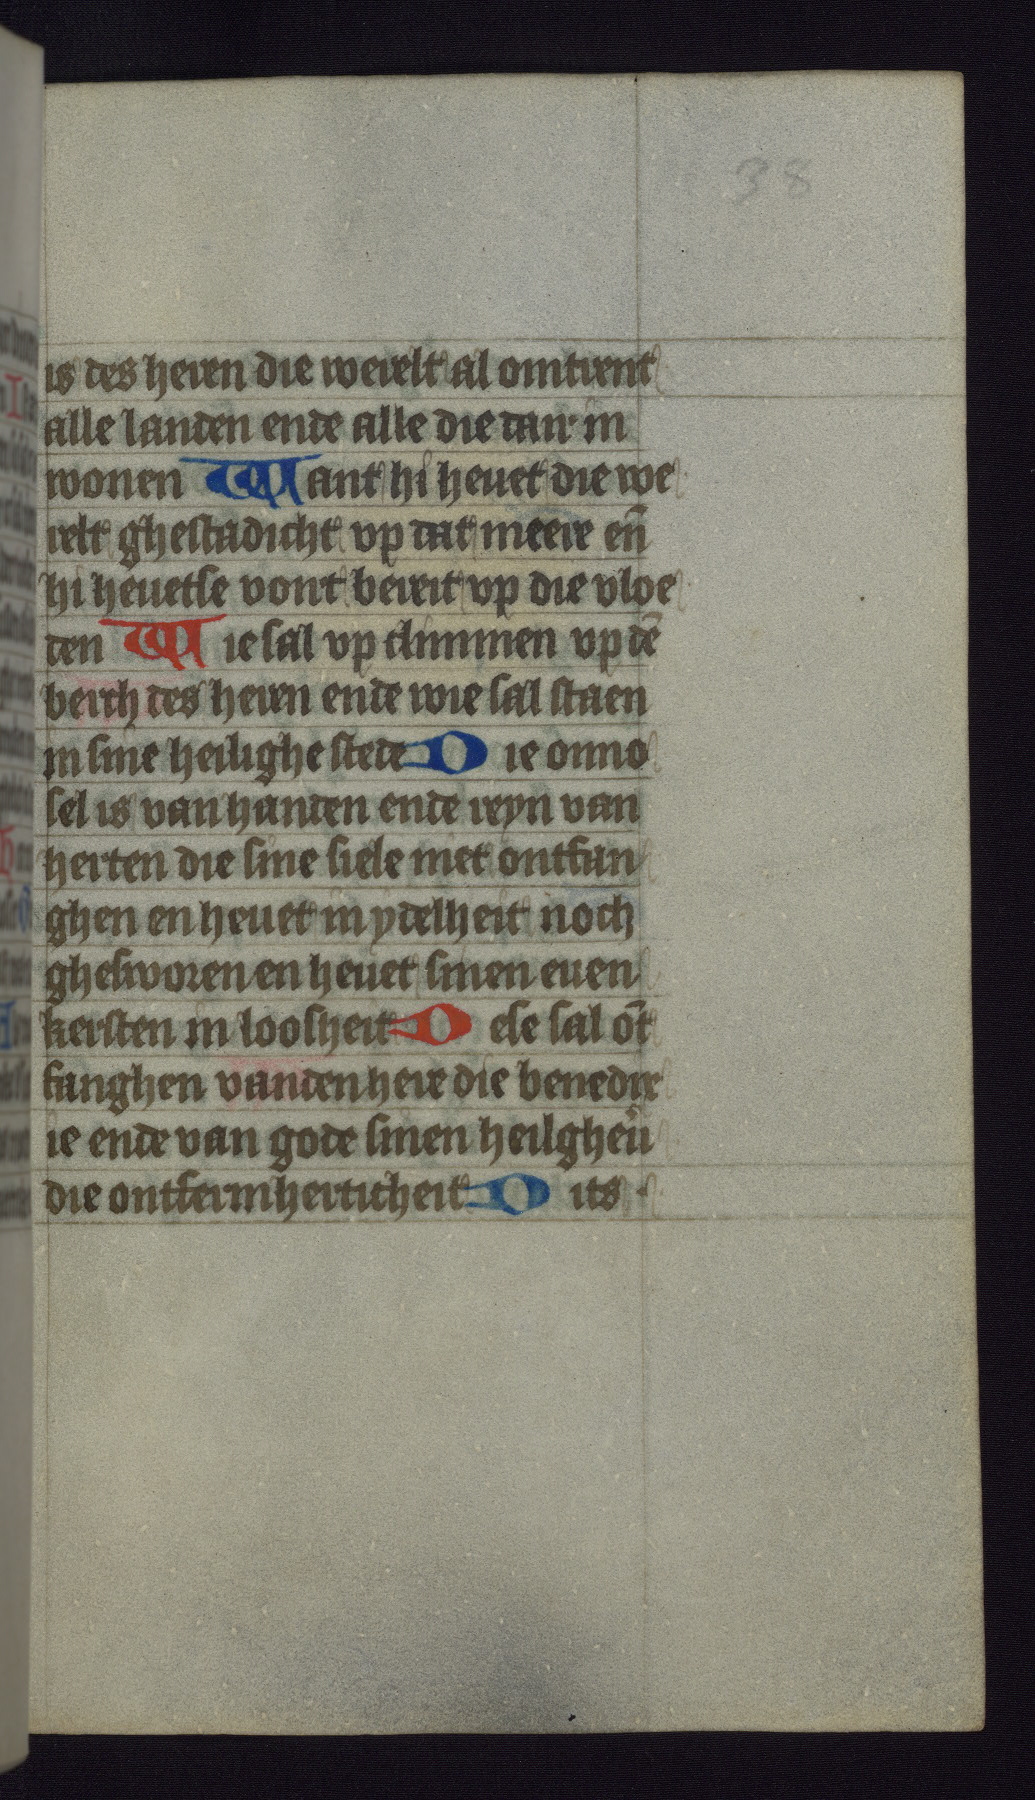 38
is des heren die werelt al omtrent
alle landen ende alle die dar in
wonen Want hi heuet die we
relt ghestadicht vp dat meere en̄
hi heuetse vort bereit vp die vloe
den Wie sal vp climmen vp dē
berch des heren ende wie sal staen
in sine heilighe stede Die onno
sel is van handen ende reyn van
herten die sine siele niet ontfan
ghen en heuet in ydelheit noch
ghesworen en heuet sinen euen
kersten in loosheit Dese sal ōt
fanghen vanden here die benedix
ie ende van gode sinen heilghe͛
die ontfermherticheit Dits